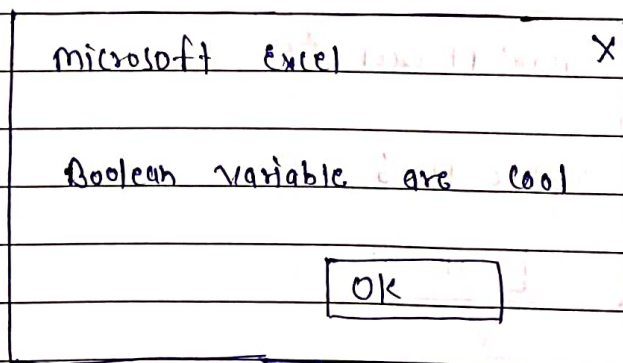 microsoft Excel X
Boolean variable are cool
OK